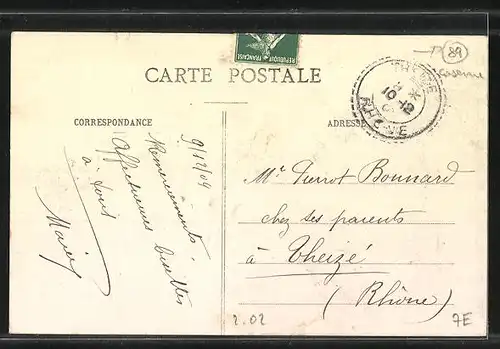 REPUBLIQUE FRANÇAISE
89
Caserne
CARTE POSTALE
CORRESPONDANCE
ADRESSE
THEIZE
10-12
RHONE
9/12/09
Remerciements.
Affectueuses
à tous
Mr Pierrot Bonnard
chez ses parents
à Theizé
(Rhône)
2.02
7E